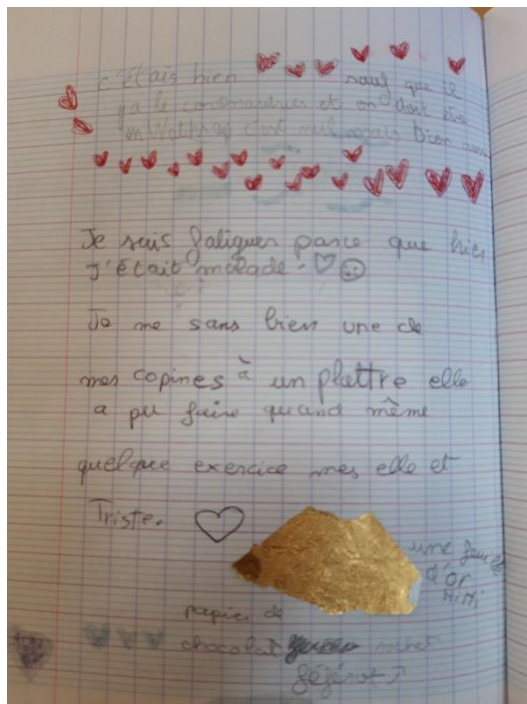 c'étais bien sauf que il
ya le coronavirus et on doit être
en Wathsap c'est nul mais bien aussi
Je suis fatiguer parce que hier
J'était malade.
Je me sans bien une de
mes copines à un plattre elle
a pu faire quand même
quelque exercice mes elle et
Triste.
une
d'or
HiHi
papier de
chocolat